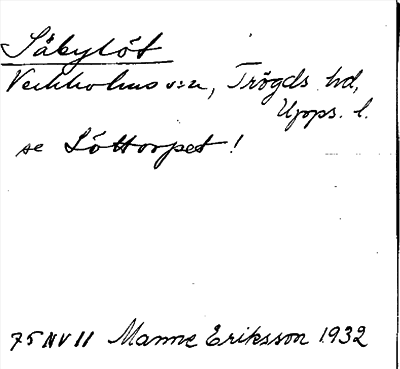 Säbylöt
Veckholms sn, Trögds hd,
Upps. l.
se Löttorpet!
75 NV 11 Manne Eriksson 1932